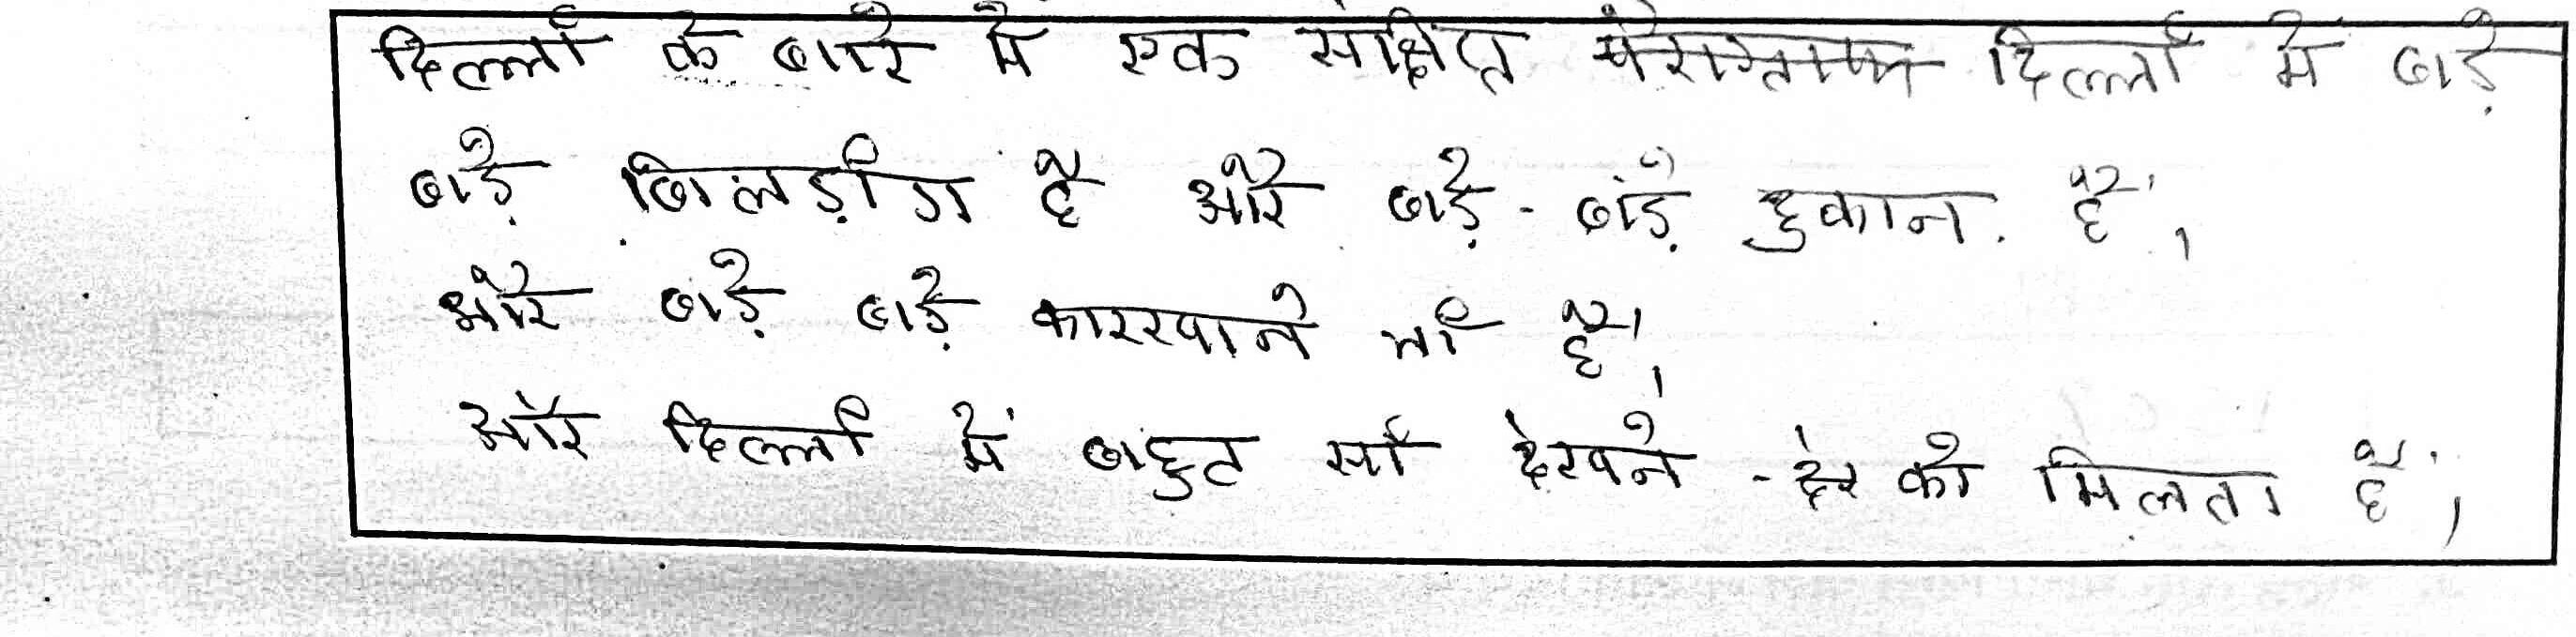 दिल्ली के बारे में एक संक्षिप्त दिल्ली में बड़े
बड़े बिलड़ीग है और बड़े - बड़े दुकान है।
और बड़े बड़े कारखाने भी हैं।
और दिल्ली में बहुट सी देखने को मिलता हैं।